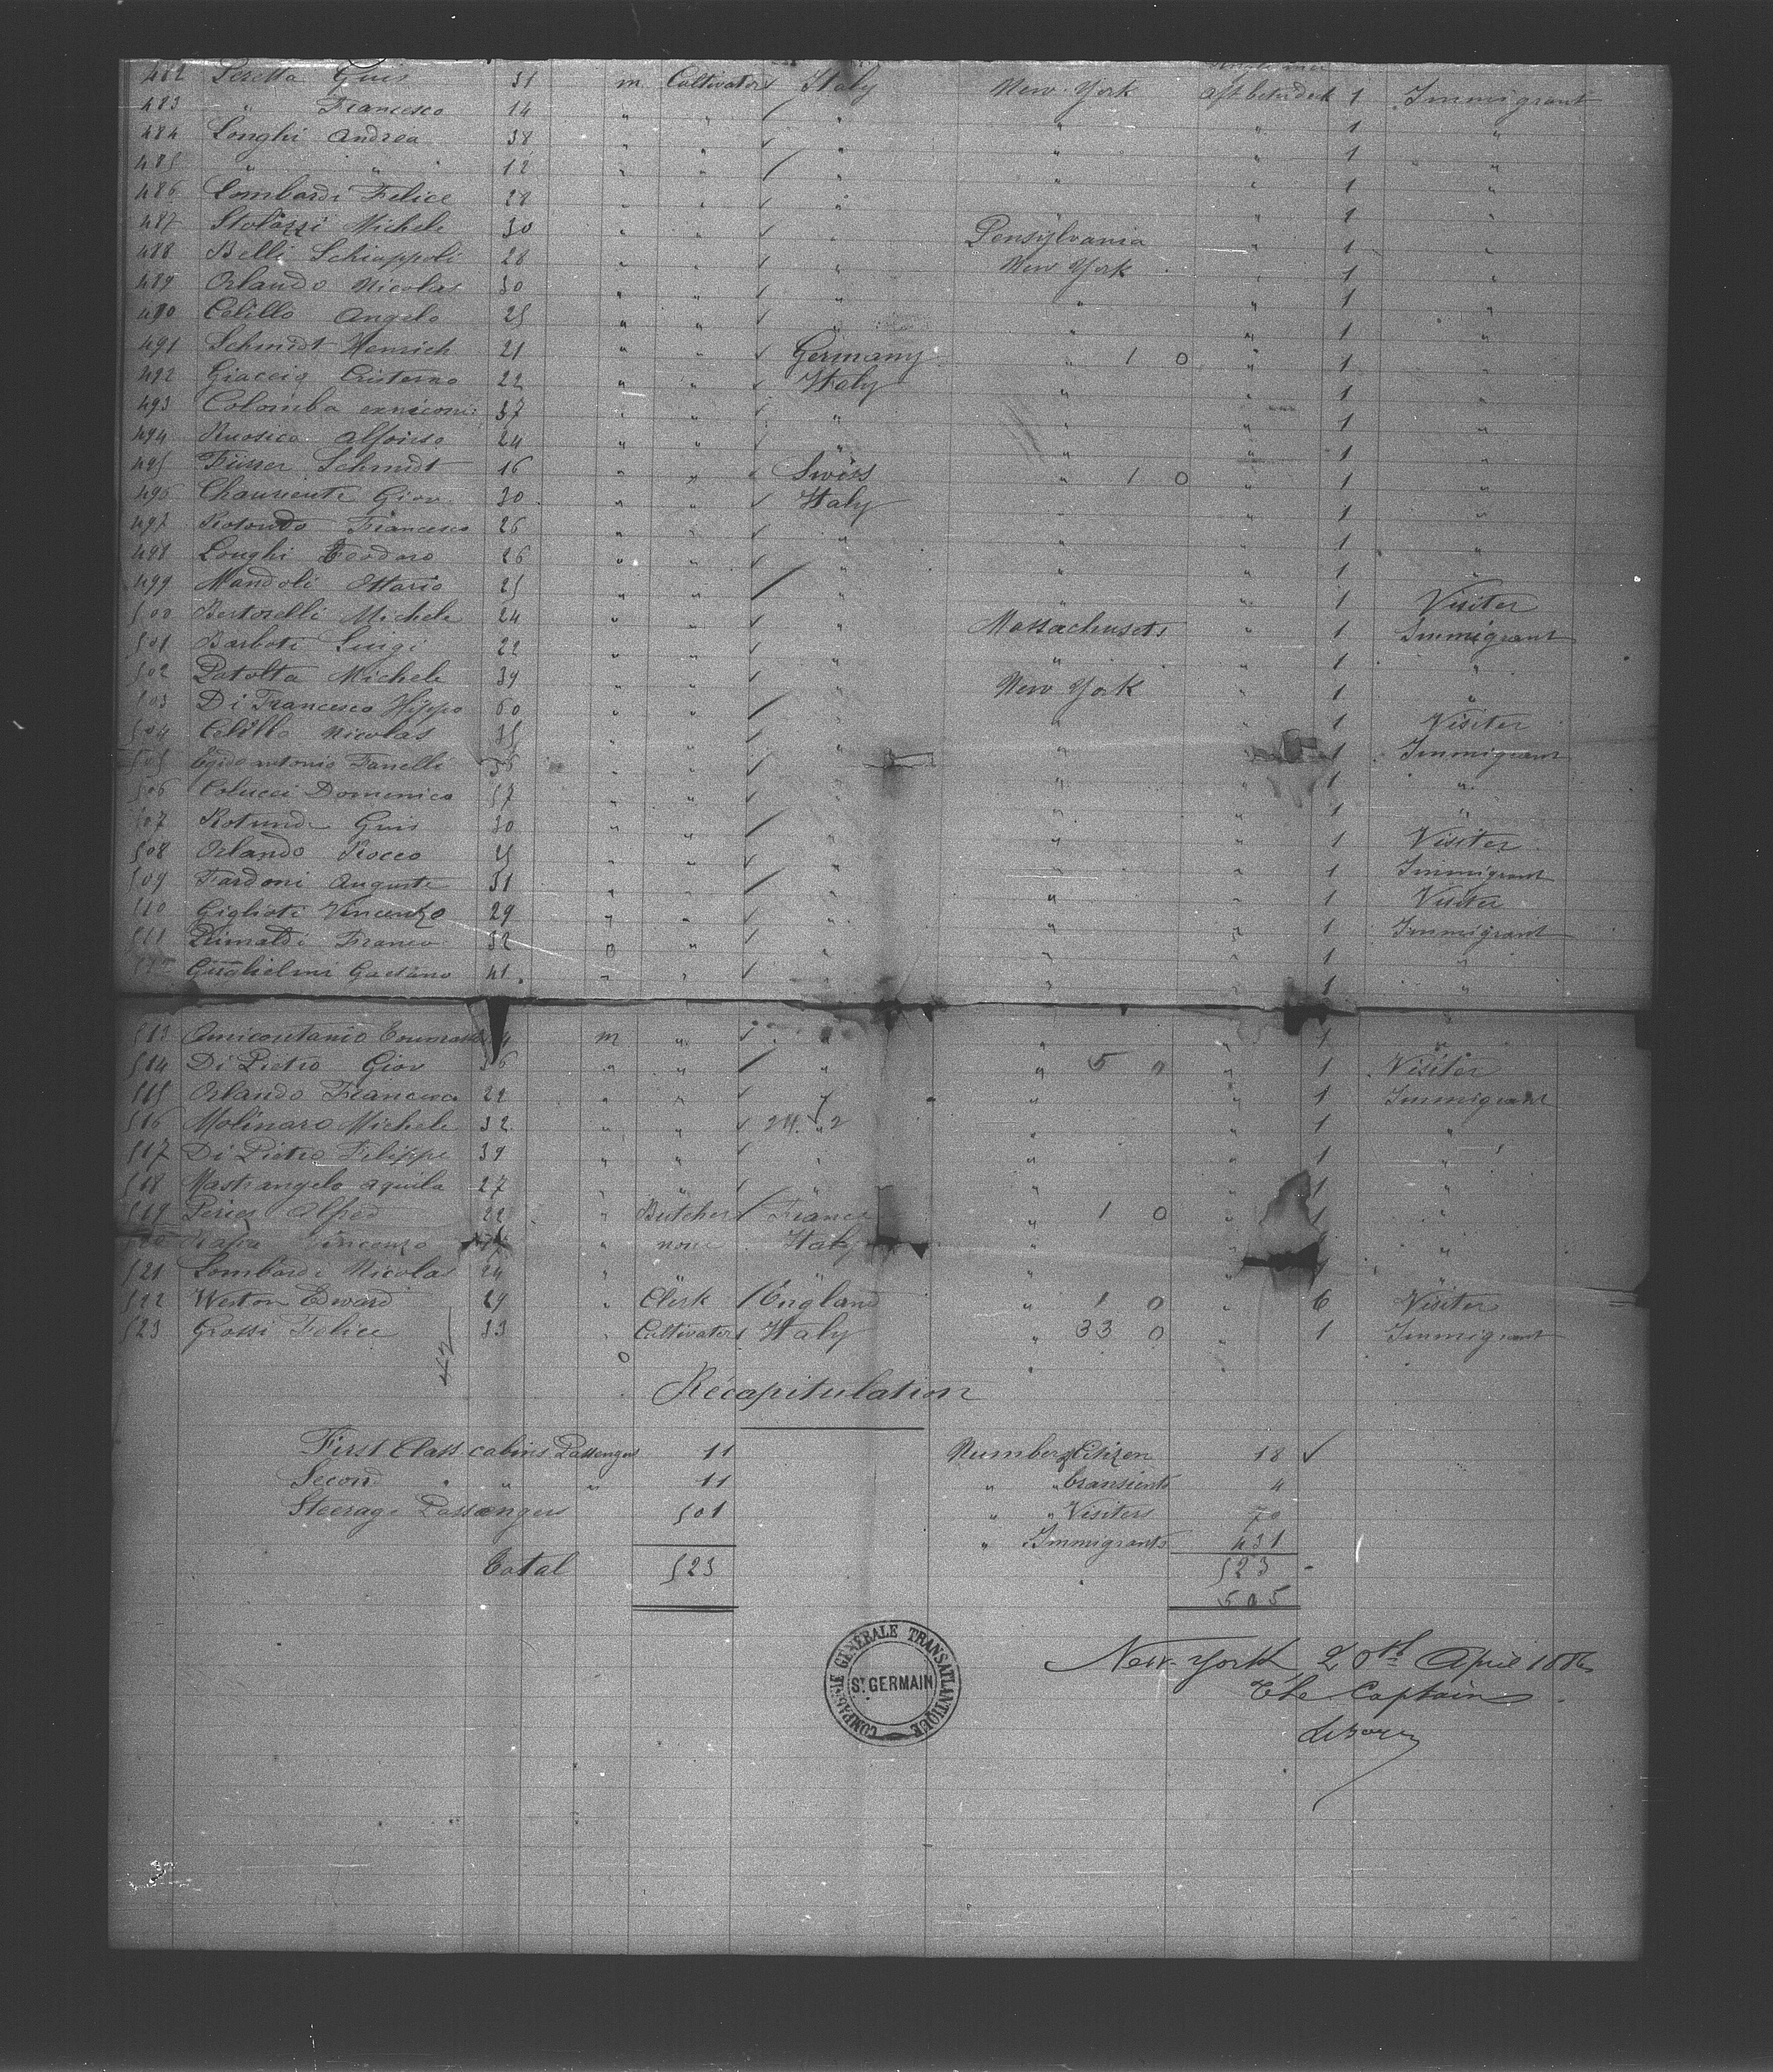 482 Peretta Guis 31 m Cultivator Italy New York aft betwdek 1 Immigrant
483 " Francesco 14 " " / " " " 1 "
484 Longhi Andrea 38 " " " " " 1 "
485 " " 12 " " / " " " 1 "
486 Lombardi Felice 28 " " " " 1 "
487 Michele 30 " " " Pensylvania " 1 "
488 Belli Schiappoli 28 " " " New York " 1 "
489 Orlando Nicolas 30 " " " " " 1 "
490 Celillo Angelo 25 " " " " " 1 "
491 Schmidt Henrich 21 " " Germany " 1 0 " 1 "
492 Giaccig Cristerno 22 " " Italy " " 1 "
493 Colomba 37 " " " " " 1 "
494 Alfonso 24 " " " " " 1 "
495 Füsser Schmidt 16 " " Swiss " 1 0 " 1 "
496 Giov 30 " " Italy " " 1 "
497 Rotondo Francesco 26 " " " " " 1 "
498 Longhi Teodoro 26 " " " " " 1 "
499 Mandoli Ottavio 25 " " / " " " 1 Visiter
500 Bertorelli Michele 24 " " " Massachusets " 1 Immigrant
501 Barboti Luigi 22 " " " " " 1 "
502 Patolta Michele 39 " " " New York " 1 "
503 Di Francesco Hippo 60 " " / " " " 1 Visiter
504 Celillo Nicolas 35 " " " " " 1 Immigrant
505 Egido antonio Fanelli 36 " " " " 1 "
506 Colucci Domenico 57 " " " " " 1 "
507 Rotundo Guis 30 " " / " " " 1 Visiter
508 Orlando Rocco 25 " " " " " 1 Immigrant
509 Fardoni Auguste 31 " " / " " " 1 Visiter
510 Giglioti Vincenzo 29 " " " " " 1 Immigrant
511 Rimaldi Franco 32 " " " " " 1 "
512 Guglielmi Gaetano 41 " " " " 1 "
513 m " " " " 1 "
514 Di Pietro Giov 36 " " / " " 5 0 " 1 Visiter
515 Orlando Francesco 29 " " " " " 1 Immigrant
516 Molinaro Michele 32 " " 24 " 2 " " 1 "
517 Di Pietro Filippe 39 " " " " " 1 "
518 Mastrangelo aquila 27 " " " " 1 "
519 Alfred 22 " Butcher / France " 1 0 " 1 "
520 Vincenzo " none Italy " " "
521 Lombardi Nicolas 24 " " " " " 1 "
522 Weston Edward 29 " Clerk / England " 1 0 " 6 Visiter
523 Grossi Felice 33 " Cultivator Italy " 33 0 " 1 Immigrant
Recapitulation
First Class cabins Passenger 11 Number of Citizen 18 ✓
Second " " " 11 " " transients 4
Steerage Passengers 501 " " Visiters 70
" Immigrants 431
Total 523 523
505
COMPAGNIE GÉNÉRALE TRANSATLANTIQUE
ST GERMAIN
New-York 20th April 1886
The Captain